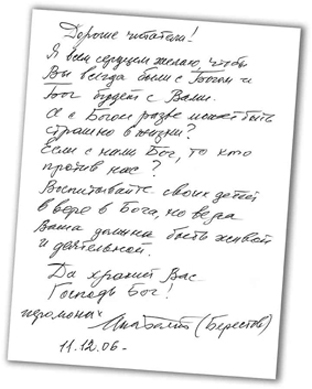 Дорогие читатели!
Я всем сердцем желаю, чтобы
Вы всегда были с Богом и
Бог будет с Вами.
А с Богом разве может быть
страшно в жизни?
Если с нами Бог, то кто
против нас?
Воспитывайте своих детей
в вере в Бога, но вера
Ваша должна быть живой
и деятельной.
Да хранит Вас
Господь Бог!
иеромонах
Анатолий (Берестов)
11.12.06-